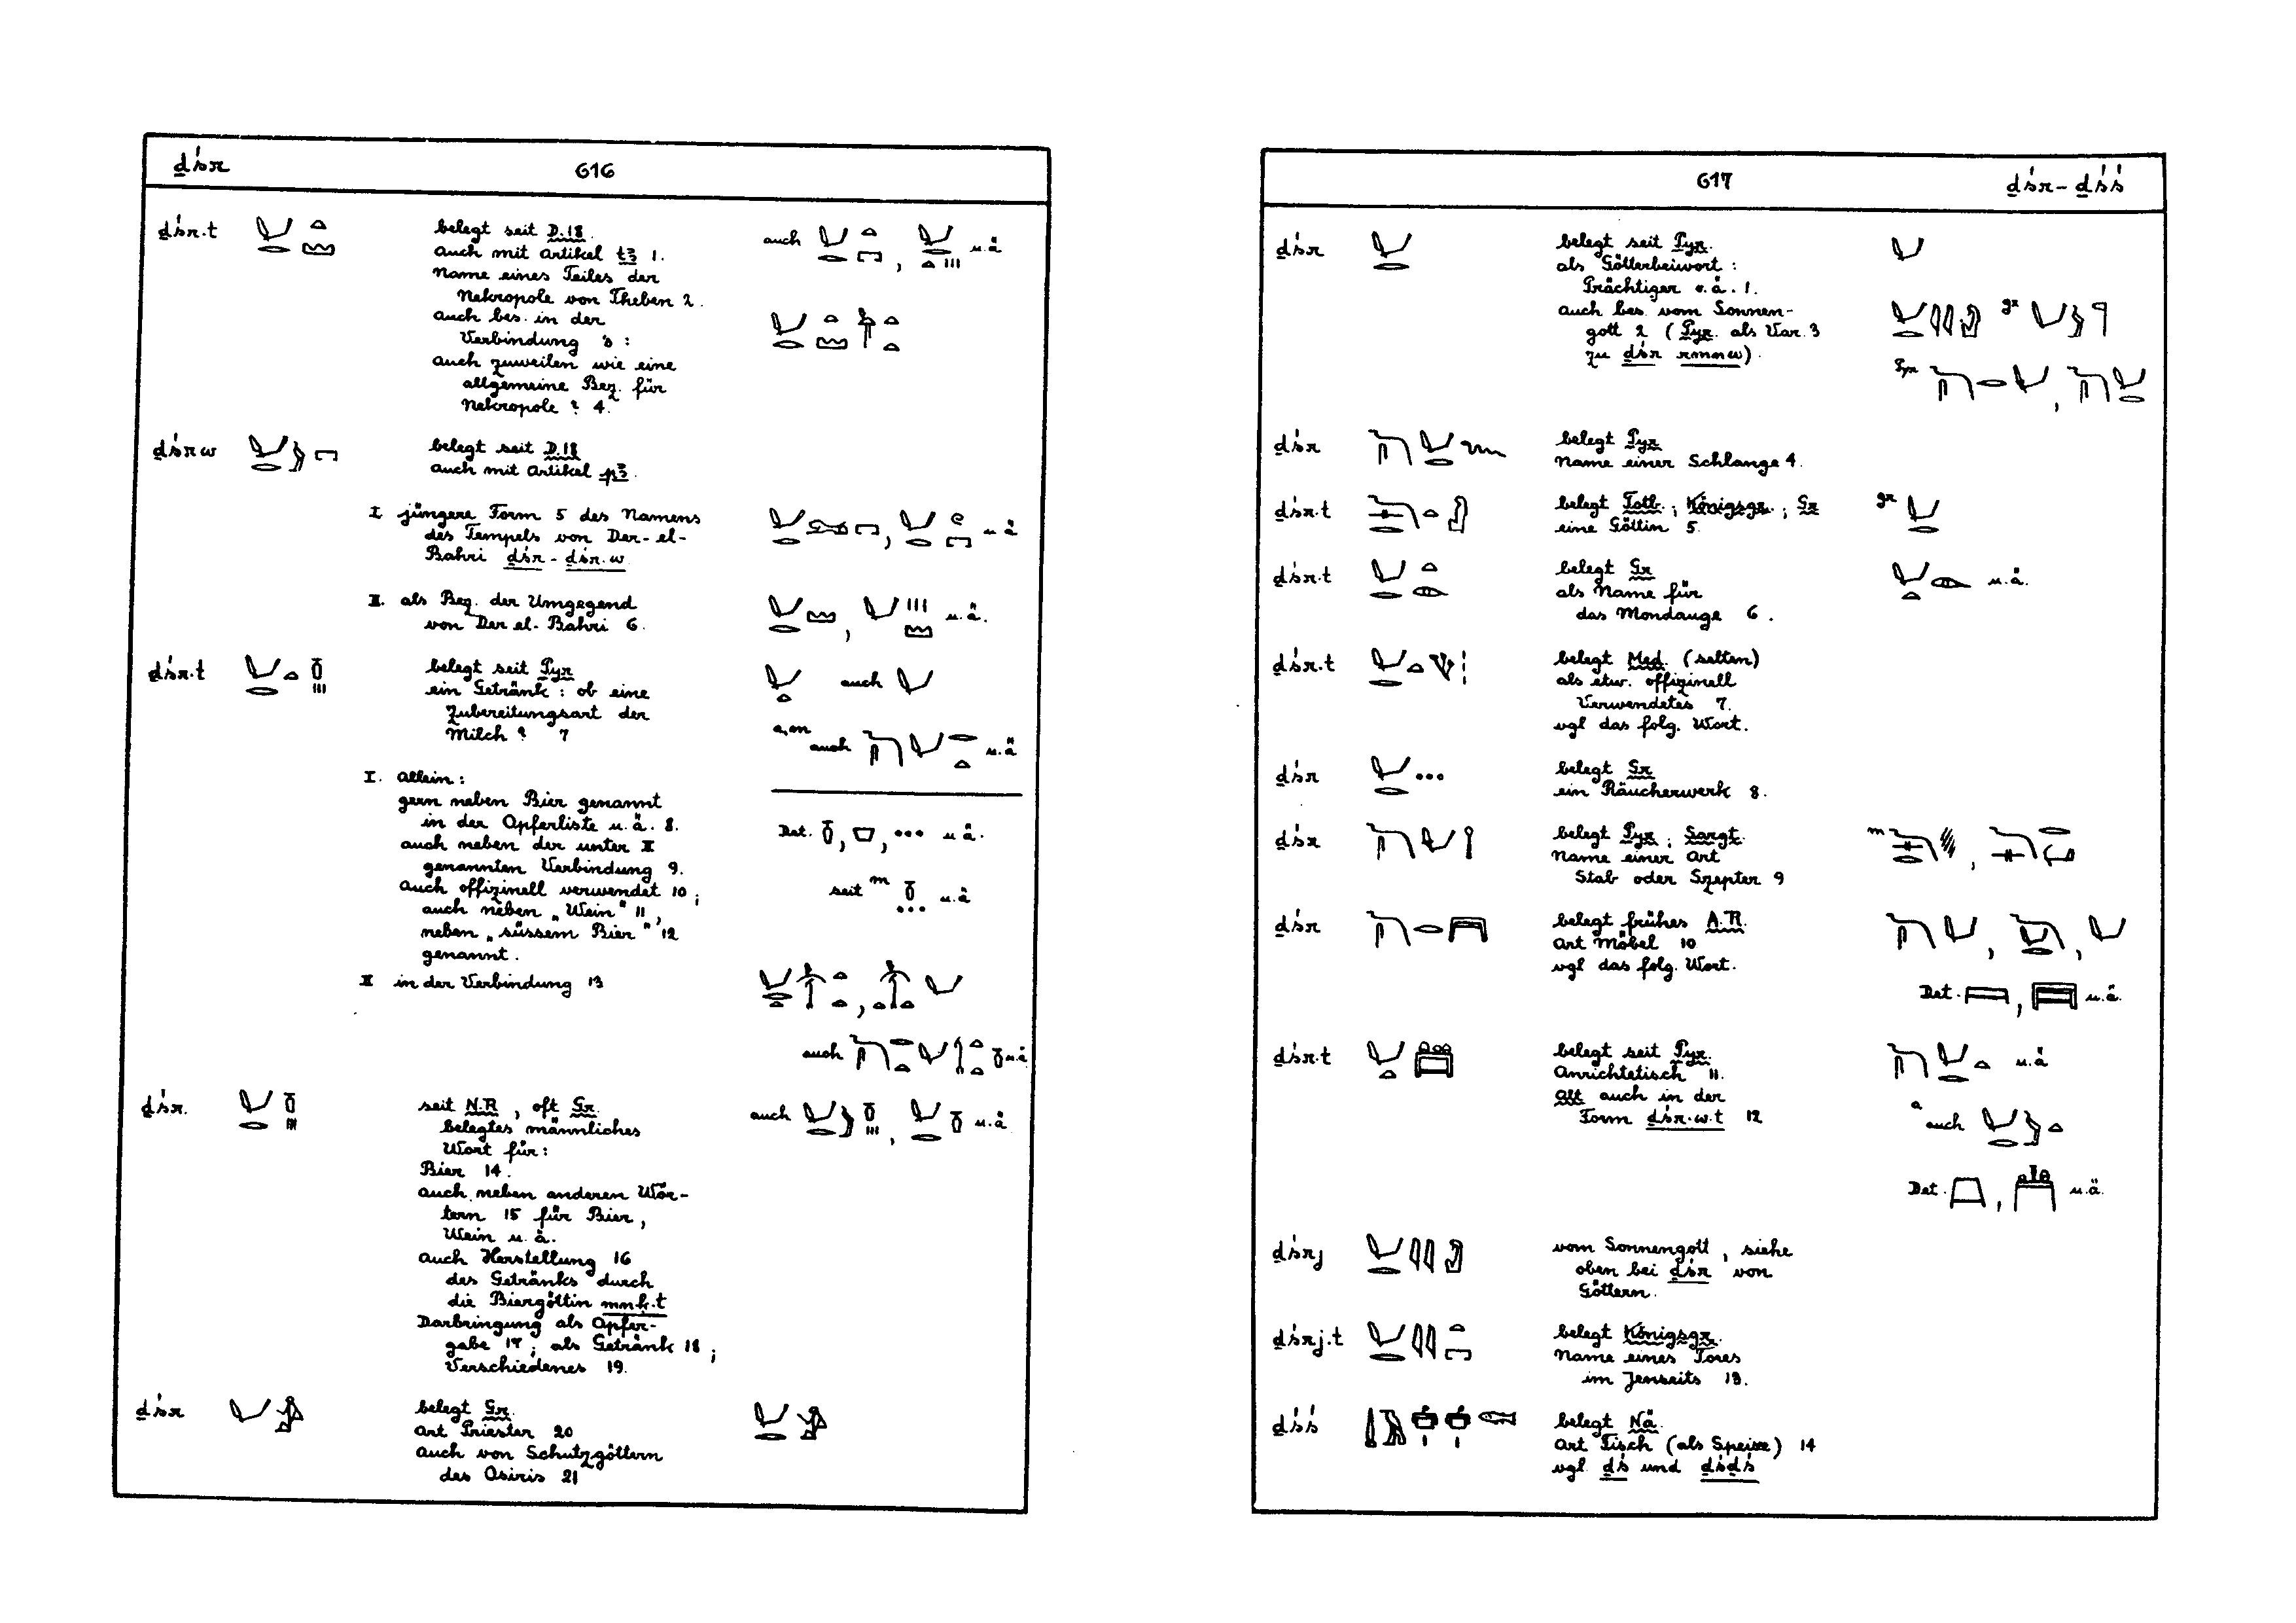 ḏśr 616
ḏśr.t belegt seit D.18. auch , u.ä
auch mit Artikel tꜣ 1.
Name eines Teiles der
Nekropole von Theben 2.
auch bes. in der
Verbindung 3 :
auch zuweilen wie eine
allgemeine Bez. für
Nekropole ? 4.
ḏśrw belegt seit D.18
auch mit Artikel pꜣ.
I jüngere Form 5 des Namens , u.ä
des Tempels von Der-el-
Bahri ḏśr-ḏśr.w
II. als Bez. der Umgegend , u.ä.
von Der el-Bahri 6.
ḏśr.t belegt seit Pyr. auch
ein Getränk : ob eine
Zubereitungsart der
Milch ? 7 a, m auch u.ä
I. Allein :
gern neben Bier genannt
in der Opferliste u.ä. 8. Det. , , u.ä.
auch neben der unter II
genannten Verbindung 9.
Auch offizinell verwendet 10 ; seit m u.ä
auch neben „Wein" 11,
neben „süssem Bier" 12
genannt.
II in der Verbindung 13 ,
auch u.ä
ḏśr. seit N.R , oft Gr. auch , u.ä
belegtes männliches
Wort für :
Bier 14.
auch neben anderen Wör-
tern 15 für Bier,
Wein u.ä.
auch Herstellung 16
des Getränks durch
die Biergöttin mnḳ.t
Darbringung als Opfer-
gabe 17 ; als Getränk 18 ;
Verschiedenes 19.
ḏśr belegt Gr.
Art Priester 20
auch von Schutzgöttern
des Osiris 21
617 ḏśr-ḏśś
ḏśr belegt seit Pyr.
als Götterbeiwort :
Prächtiger o.ä. 1.
auch bes. vom Sonnen- gr
gott 2 (Pyr. als Var. 3
zu ḏśr rmnw). Pyr ,
ḏśr belegt Pyr
Name einer Schlange 4.
ḏśr.t belegt Totb. ; Königsgr. ; Gr gr
eine Göttin 5.
ḏśr.t belegt Gr u.ä.
als Name für
das Mondauge 6.
ḏśr.t belegt Med. (selten)
als etw. offizinell
Verwendetes 7.
vgl das folg. Wort.
ḏśr belegt Gr
ein Räucherwerk 8.
ḏśr belegt Pyr ; Sargt. m ,
Name einer Art
Stab oder Szepter 9
ḏśr belegt frühes A.R. , ,
Art Möbel 10
vgl das folg. Wort.
Det. , u.ä.
ḏśr.t belegt seit Pyr. u.ä
Anrichtetisch 11.
Alt auch in der a auch
Form ḏśr.w.t 12
Det. , u.ä.
ḏśrj vom Sonnengott, siehe
oben bei ḏśr von
Göttern.
ḏśrj.t belegt Königsgr.
Name eines Tores
im Jenseits 13.
ḏśś belegt Nä.
Art Fisch (als Speise) 14
vgl. ḏś und ḏśḏś